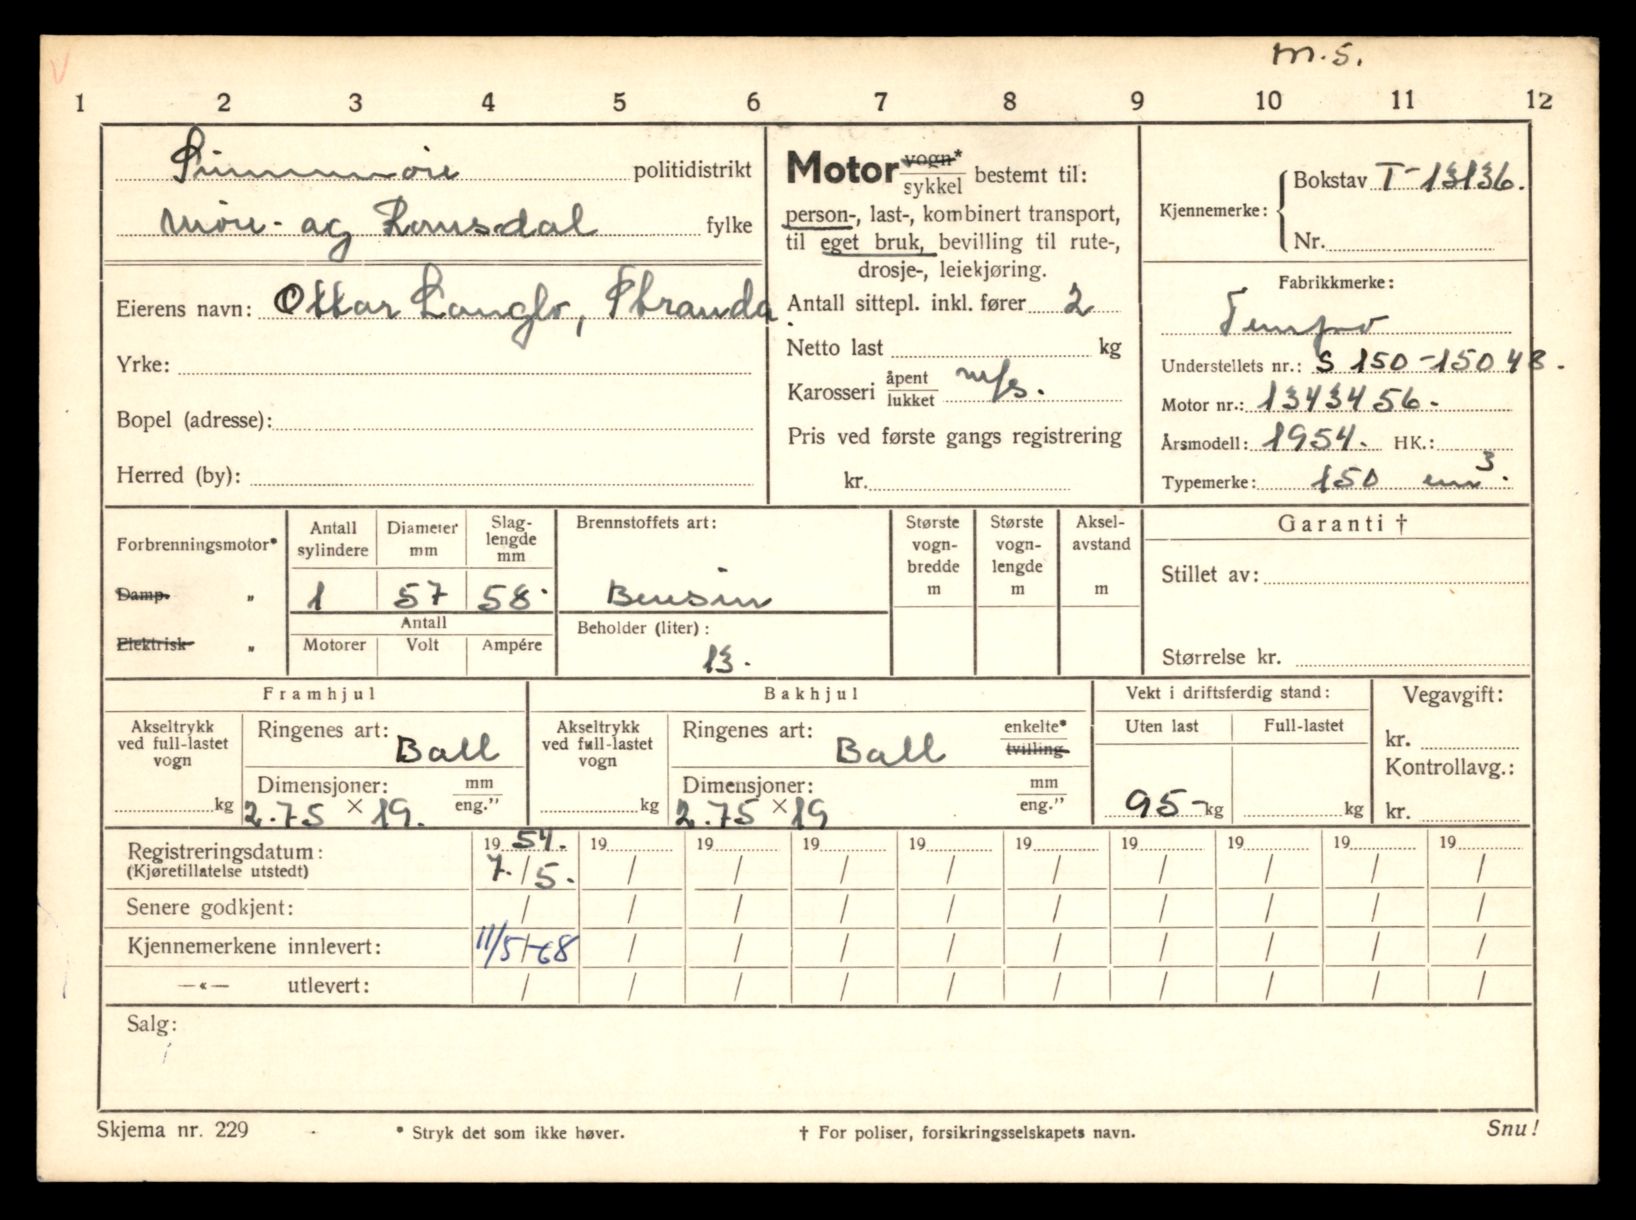 m.5.
1 2 3 4 5 6 7 8 9 10 11 12
Sunnmøre politidistrikt
Møre- og Romsdal fylke
Eierens navn: Ottar Langlo, Stranda
Yrke:
Bopel (adresse):
Herred (by):
Motor vogn* sykkel bestemt til:
person-, last-, kombinert transport,
til eget bruk, bevilling til rute-,
drosje-, leiekjøring.
Antall sittepl. inkl. fører 2
Netto last kg
Karosseri åpent lukket mfs.
Pris ved første gangs registrering
kr.
Kjennemerke: Bokstav T-13136.
Nr.
Fabrikkmerke:
Tempo
Understellets nr.: S 150-15048.
Motor nr.: 1343456.
Årsmodell: 1954. HK.:
Typemerke: 150 cm³.
Forbrenningsmotor*
Damp. „
Elektrisk „
Antall sylindere
Diameter mm
Slag-lengde mm
1 57 58.
Antall
Motorer Volt Ampére
Brennstoffets art:
Bensin
Beholder (liter):
13.
Største vogn-bredde m
Største vogn-lengde m
Aksel-avstand m
Garanti †
Stillet av:
Størrelse kr.
Framhjul
Akseltrykk ved full-lastet vogn
kg
Ringenes art: Ball
Dimensjoner: mm eng.”
2.75 × 19.
Bakhjul
Akseltrykk ved full-lastet vogn
kg
Ringenes art: Ball enkelte* tvilling
Dimensjoner: mm eng.”
2.75 × 19
Vekt i driftsferdig stand:
Uten last Full-lastet
95- kg kg
Vegavgift:
kr.
Kontrollavg.:
kr.
Registreringsdatum: 19 54. 19 19 19 19 19 19 19 19 19
(Kjøretillatelse utstedt) 7. / 5. / / / / / / / / /
Senere godkjent: / / / / / / / / / /
Kjennemerkene innlevert: 11/5-68 / / / / / / / / /
—«— utlevert: / / / / / / / / / /
Salg:
Skjema nr. 229
* Stryk det som ikke høver.
† For poliser, forsikringsselskapets navn.
Snu!